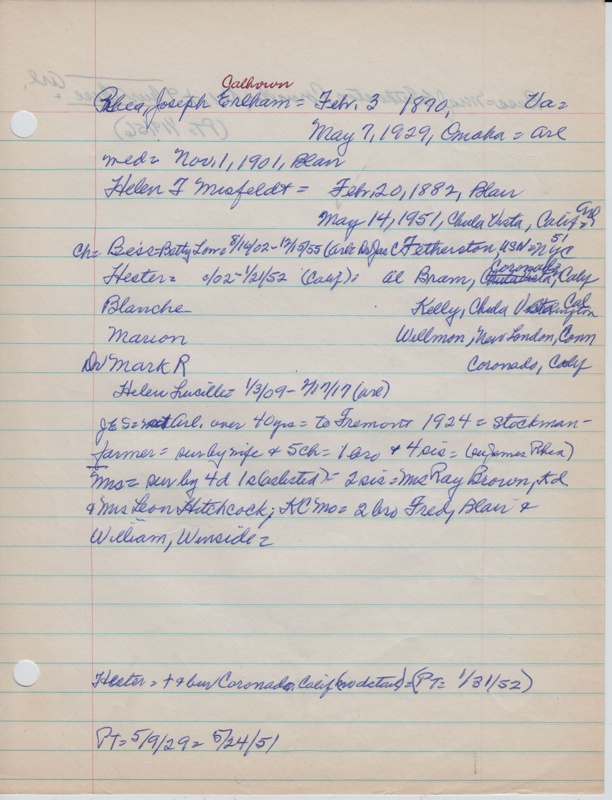 Calhoun
Rhea, Joseph Erlham = Febr. 3 1870, Va =
May 7, 1929, Omaha = Arl
med = Nov. 1, 1901, Blair
Helen F Misfeldt = Febr 20, 1882, Blair
May 14, 1951, Chula Vista, Calif = Arl
Ch = Bess = Betty Lou = 8/14/02 - 12/15/55 (Arl = Dr Jas C Fetherston, USN = NYC
Hester = /02 - 1/21/52 (Calif) = Al Bram, Coronado, Calif
Blanche Kelly, Chula Vista, Cal
Marion Willmon, New London, Conn
Dr Mark R Coronado, Calif
Helen Lucille = 1/3/09 - /17/17 (Arl)
Arl. over 40 yrs = to Fremont 1924 = stockman -
farmer = sur by wife & 5 ch = 1 bro & 4 sis = (su James Rhea)
Mrs = sur by 4 d 1 s (as listed) = 2 sis = Mrs Ray Brown, Kd
& Mrs Leon Hitchcock, KC Mo = 2 bro Fred, Blair &
William, Winside =
Hester = + & bur Coronado, Calif (no details) = (PT = 1/31/52)
PT = 5/9/29 = 5/24/51